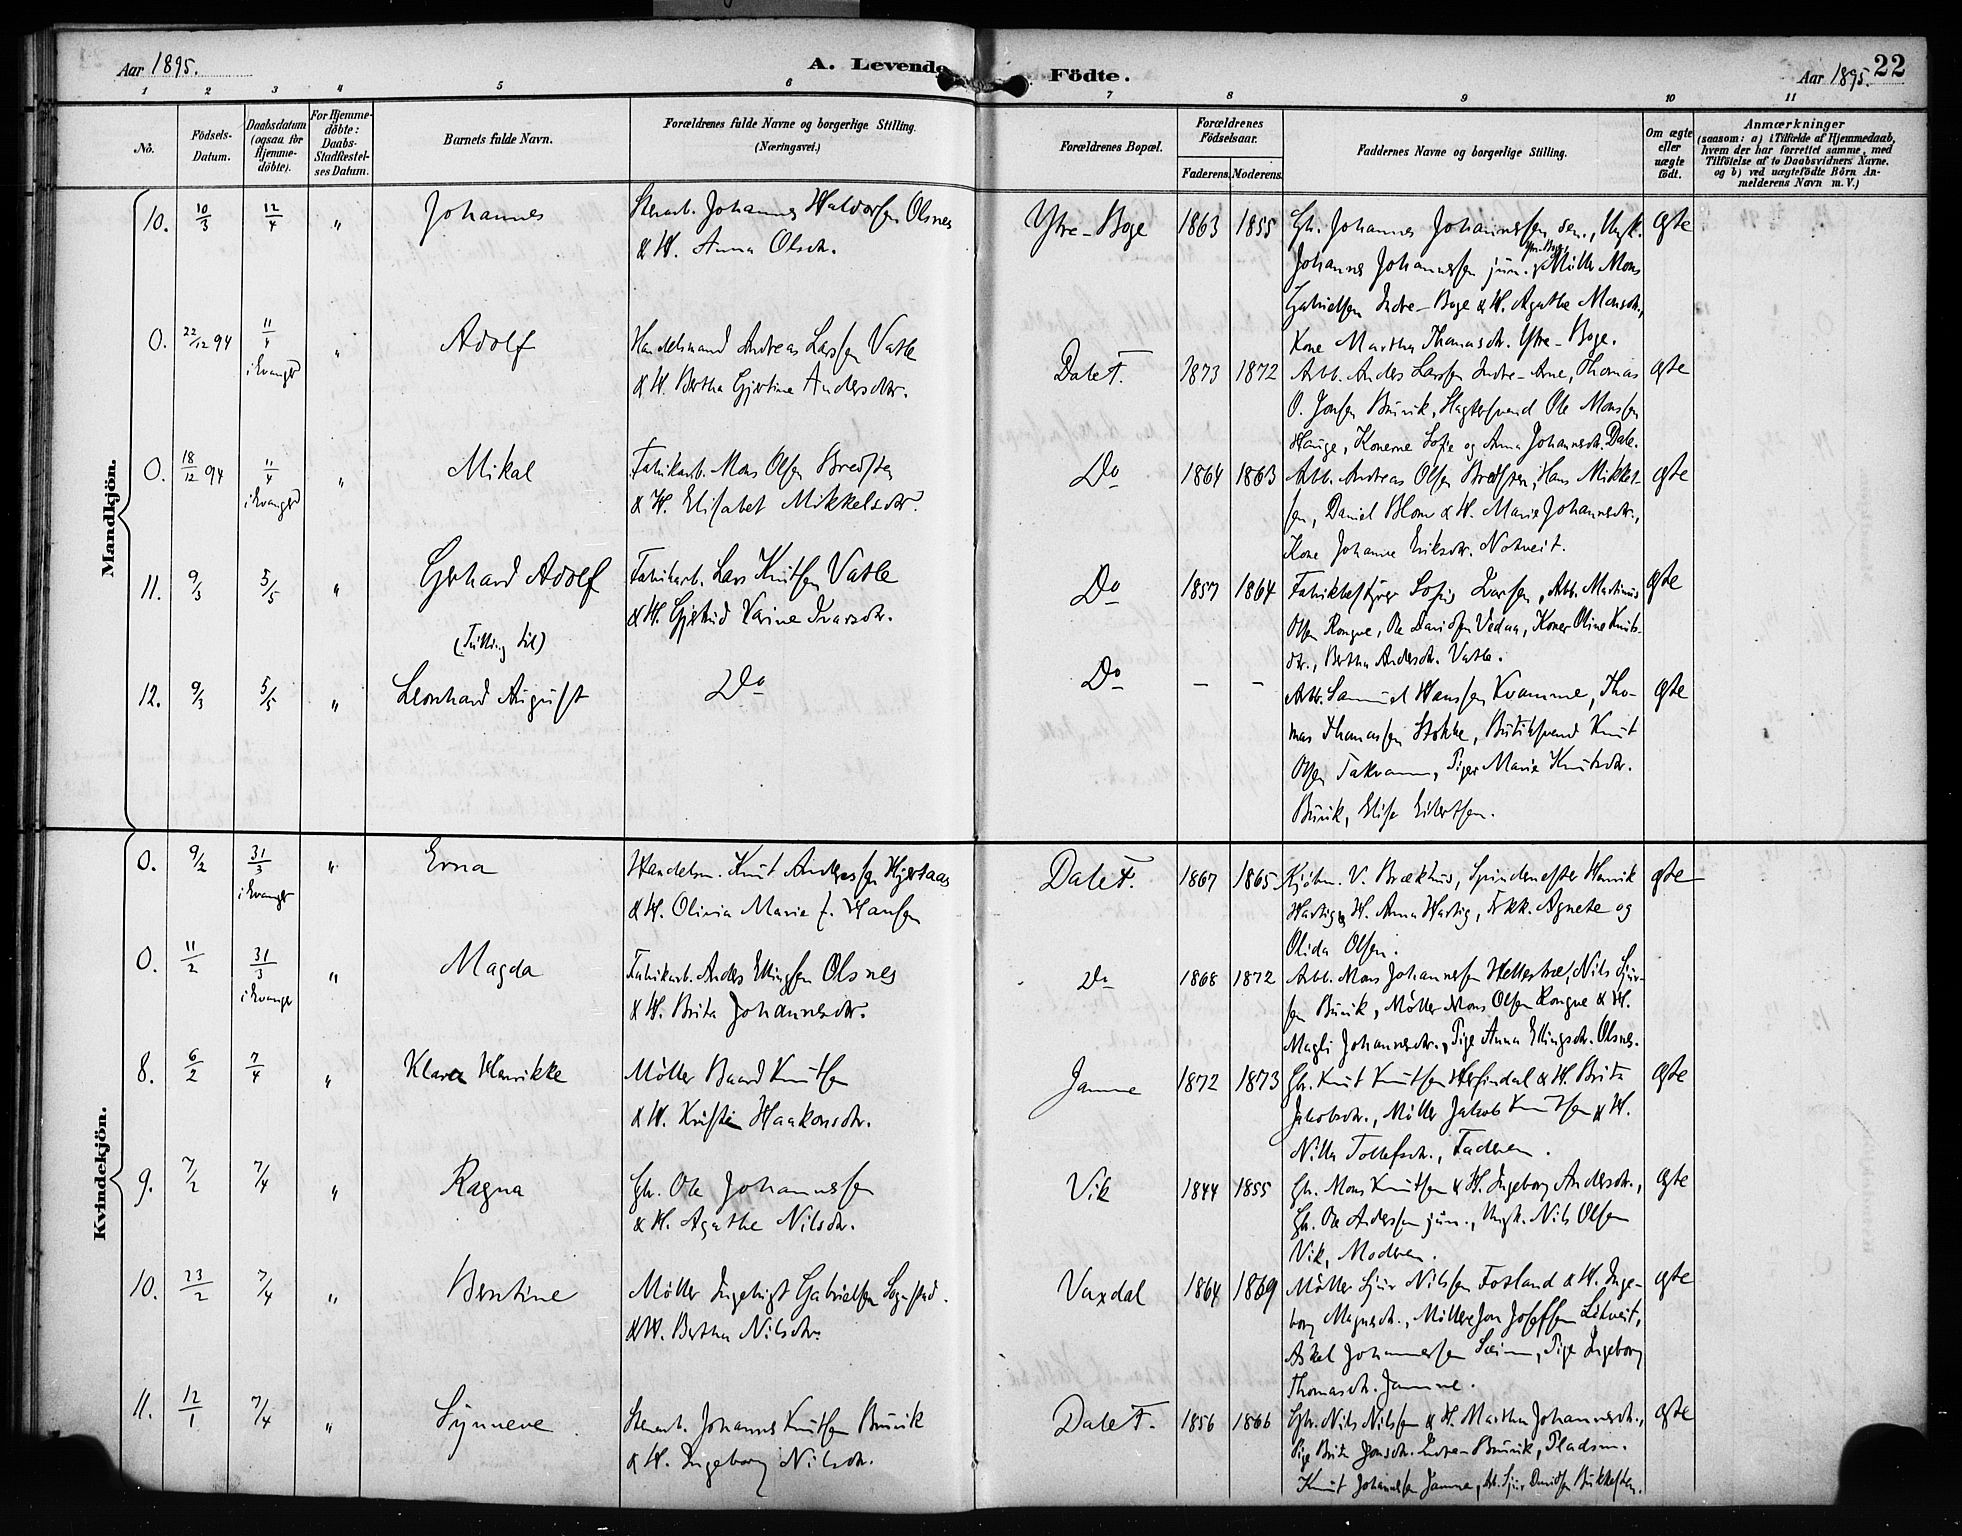 Aar 1895.
A. Levende Födte.
Aar 1895.
22
1 2 3 4 5 6 7 8 9 10 11
No.
Födsels-Datum.
Daabsdatum (ogsaa for Hjemme-döbte).
For Hjemme-döbte: Daabs-Stadfæstel-ses Datum.
Barnets fulde Navn.
Forældrenes fulde Navne og borgerlige Stilling. (Næringsvei.)
Forældrenes Bopæl.
Forældrenes Födselsaar.
Faderens. Moderens.
Faddernes Navne og borgerlige Stilling.
Om ægte eller uægte födt.
Anmærkninger
(saasom: a) i Tilfælde af Hjemmedaab, hvem der har forrettet samme, med Tilföielse af to Daabsvidners Navne, og b) ved uægtefödte Börn Anmelderens Navn m. V.)
Mandkjön.
10. 10/3 12/4 " Johannes
Stenarb. Johannes Haldorsen Olsnes
& H. Anna Olsdr.
Ytre-Boge 1863 1855
Gb. Johannes Johannessen sen., Ungk.
Johannes Johannessen jun. Ytr. Boge, Möller Mons
Gabrielsen Indre-Boge & H. Agathe Monsdr.,
Kone Martha Thomasdr. Ytre-Boge.
ægte
0. 22/12 94 11/4 i Evanger " Adolf
Handelsmand Andreas Larsen Vatle
& H. Bertha Gjertine Andersdtr.
Dale F. 1873 1872
Arb. Anders Larsen Indre-Arne, Thomas
O. Jonsen Bruvik, Slagtersvend Ole Monsen
Hauge, Konerne Sofie og Anna Johannesdr. Dale.
ægte
0. 18/12 94 11/4 i Evanger " Mikal
Fabrikarb. Mons Olsen Bredsten
& H. Elisabet Mikkelsdtr.
Do 1864 1863
Arb. Andreas Olsen Bredsten, Hans Mikkel-
sen, Daniel Blom & H. Marie Johannesdr.,
Kone Johanne Eriksdr. Notveit.
ægte
11. 9/3 5/5 " Gerhard Adolf
(Tvilling til)
Fabrikarb. Lars Knutsen Vatle
& H. Gjertrud Karine Ivarsdtr.
Do 1857 1864
Fabrikbestyrer Sofus Larsen, Arb. Martinus
Olsen Rongve, Ole Davidsen Vedaa, Koner Oline Knuts-
dtr., Bertha Andersdr. Vatle.
ægte
12. 9/3 5/5 " Leonhard August
Do
Do – –
Arb. Samuel Hansen Kvamme, Tho-
mas Thomassen Stokke, Butiksvend Knut
Olsen Takvam, Piger Marie Knutsdtr.
Bruvik, Elise Eilertsen.
ægte
Kvindekjön.
0. 9/2 31/3 i Evanger " Erna
Handelsm. Knut Andersen Hjertaas
& H. Olivia Marie f. Hansen
Dale F. 1867 1865
Kjöbm. V. Brækhus, Spindemester Henrik
Hartig & H. Anna Hartig, Frkk. Agnete og
Olida Olsen.
ægte
0. 11/2 31/3 i Evanger " Magda
Fabrikarb. Anders Ellingsen Olsnes
& H. Brita Johannesdtr.
Do 1868 1872
Arb. Mons Johannesen Hellestræ, Nils Sjur-
sen Bruvik, Möller Mons Olsen Rongve & H.
Magli Johannesdtr., Pige Anna Ellingsdr. Olsnes.
8. 6/2 7/4 " Klara Henrikke
Möller Baard Knutsen
& H. Kristi Haakonsdtr.
Jamne 1872 1873
Gb. Knut Knutsen Herfindal & H. Brita
Jakobsdtr., Möller Jakob Knutsen & H.
Nilla Tollefsdr., Faderen.
ægte
9. 7/2 7/4 " Ragna
Gb. Ole Johannessen
& H. Agathe Nilsdtr.
Vik 1844 1855
Gb. Mons Knutsen & H. Ingeborg Andersdr.,
Gb. Ole Andersen jun., Ungk. Nils Olsen
Vik, Moderen.
ægte
10. 23/2 7/4 " Bentine
Möller Ingebrigt Gabrielsen Sognstad.
& H. Bertha Nilsdtr.
Vaxdal 1864 1869
Möller Sjur Nilsen Fosland & H. Inge-
borg Magnesdr., Möllere Jon Josefsen Lidtveit,
Askel Johannessen Seim, Pige Ingeborg
Thomasdr. Jamne.
ægte
11. 12/1 7/4 " Synneve
Stenarb. Johannes Knutsen Bruvik
& H. Ingeborg Nilsdr.
Dale F. 1856 1866
Gb. Nils Nilsen & H. Martha Johannesdr.,
Pige Brita Jonsdr. Indre-Bruvik, Pladsm.
Knut Johannesen Jamne, Arb. Sjur Davidsen Bukkesten.
ægte